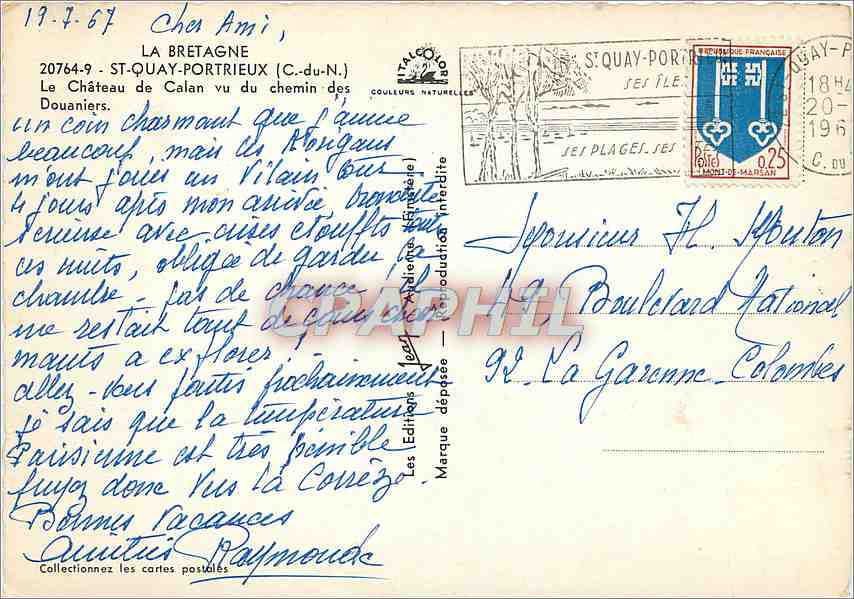 19-7-67 Cher Ami,
LA BRETAGNE
20764-9 - ST-QUAY-PORTRIEUX (C.-du-N.)
Le Château de Calan vu du chemin des
Douaniers.
un coin charmant que j'aime
beaucoup, mais les Korigans
m'ont joués un vilain tour
4 jours après mon arrivée
avec crises
ces nuits, obligée de garder la
chambre - pas de chance, il
me restait tant de coins
a explorer!
allez-vous partir prochainement
je sais que la température
Parisienne est très pénible
fuyez donc vers la Corrèze.
Bonnes Vacances
Amitiés Raymonde
Collectionnez les cartes postales
ITALCOLOR
COULEURS NATURELLES
Les Editions Jean Audierne (Finistère)
Marque déposée — Reproduction interdite
CPAPHIL
ST QUAY-PORTRIEUX
SES ÎLES
SES PLAGES-SES
REPUBLIQUE FRANÇAISE
POSTES
0,25
MONT-DE-MARSAN
QUAY-P
18H4
20-
196
C. DU
Monsieur H. Mouton
49, Boulevard National
92-La Garenne-Colombes